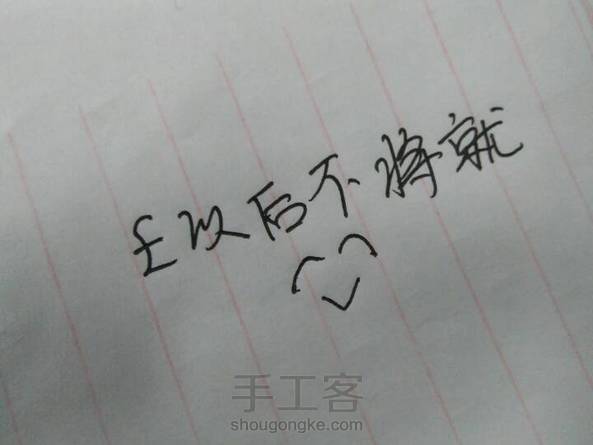 £以后不将就
手工客
shougongke.com